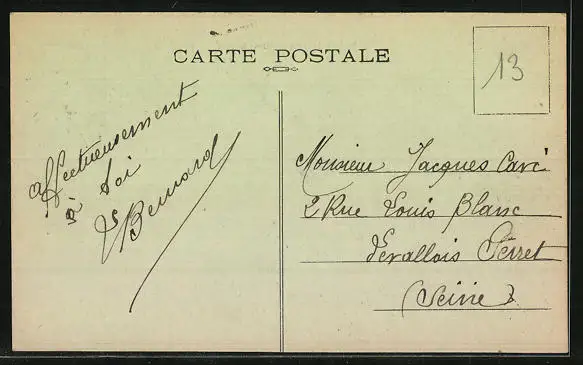 CARTE POSTALE
13
Affectueusement
à toi
Bernard
Monsieur Jacques Cari
2 Rue Louis Blanc
Levallois Perret
(Seine)